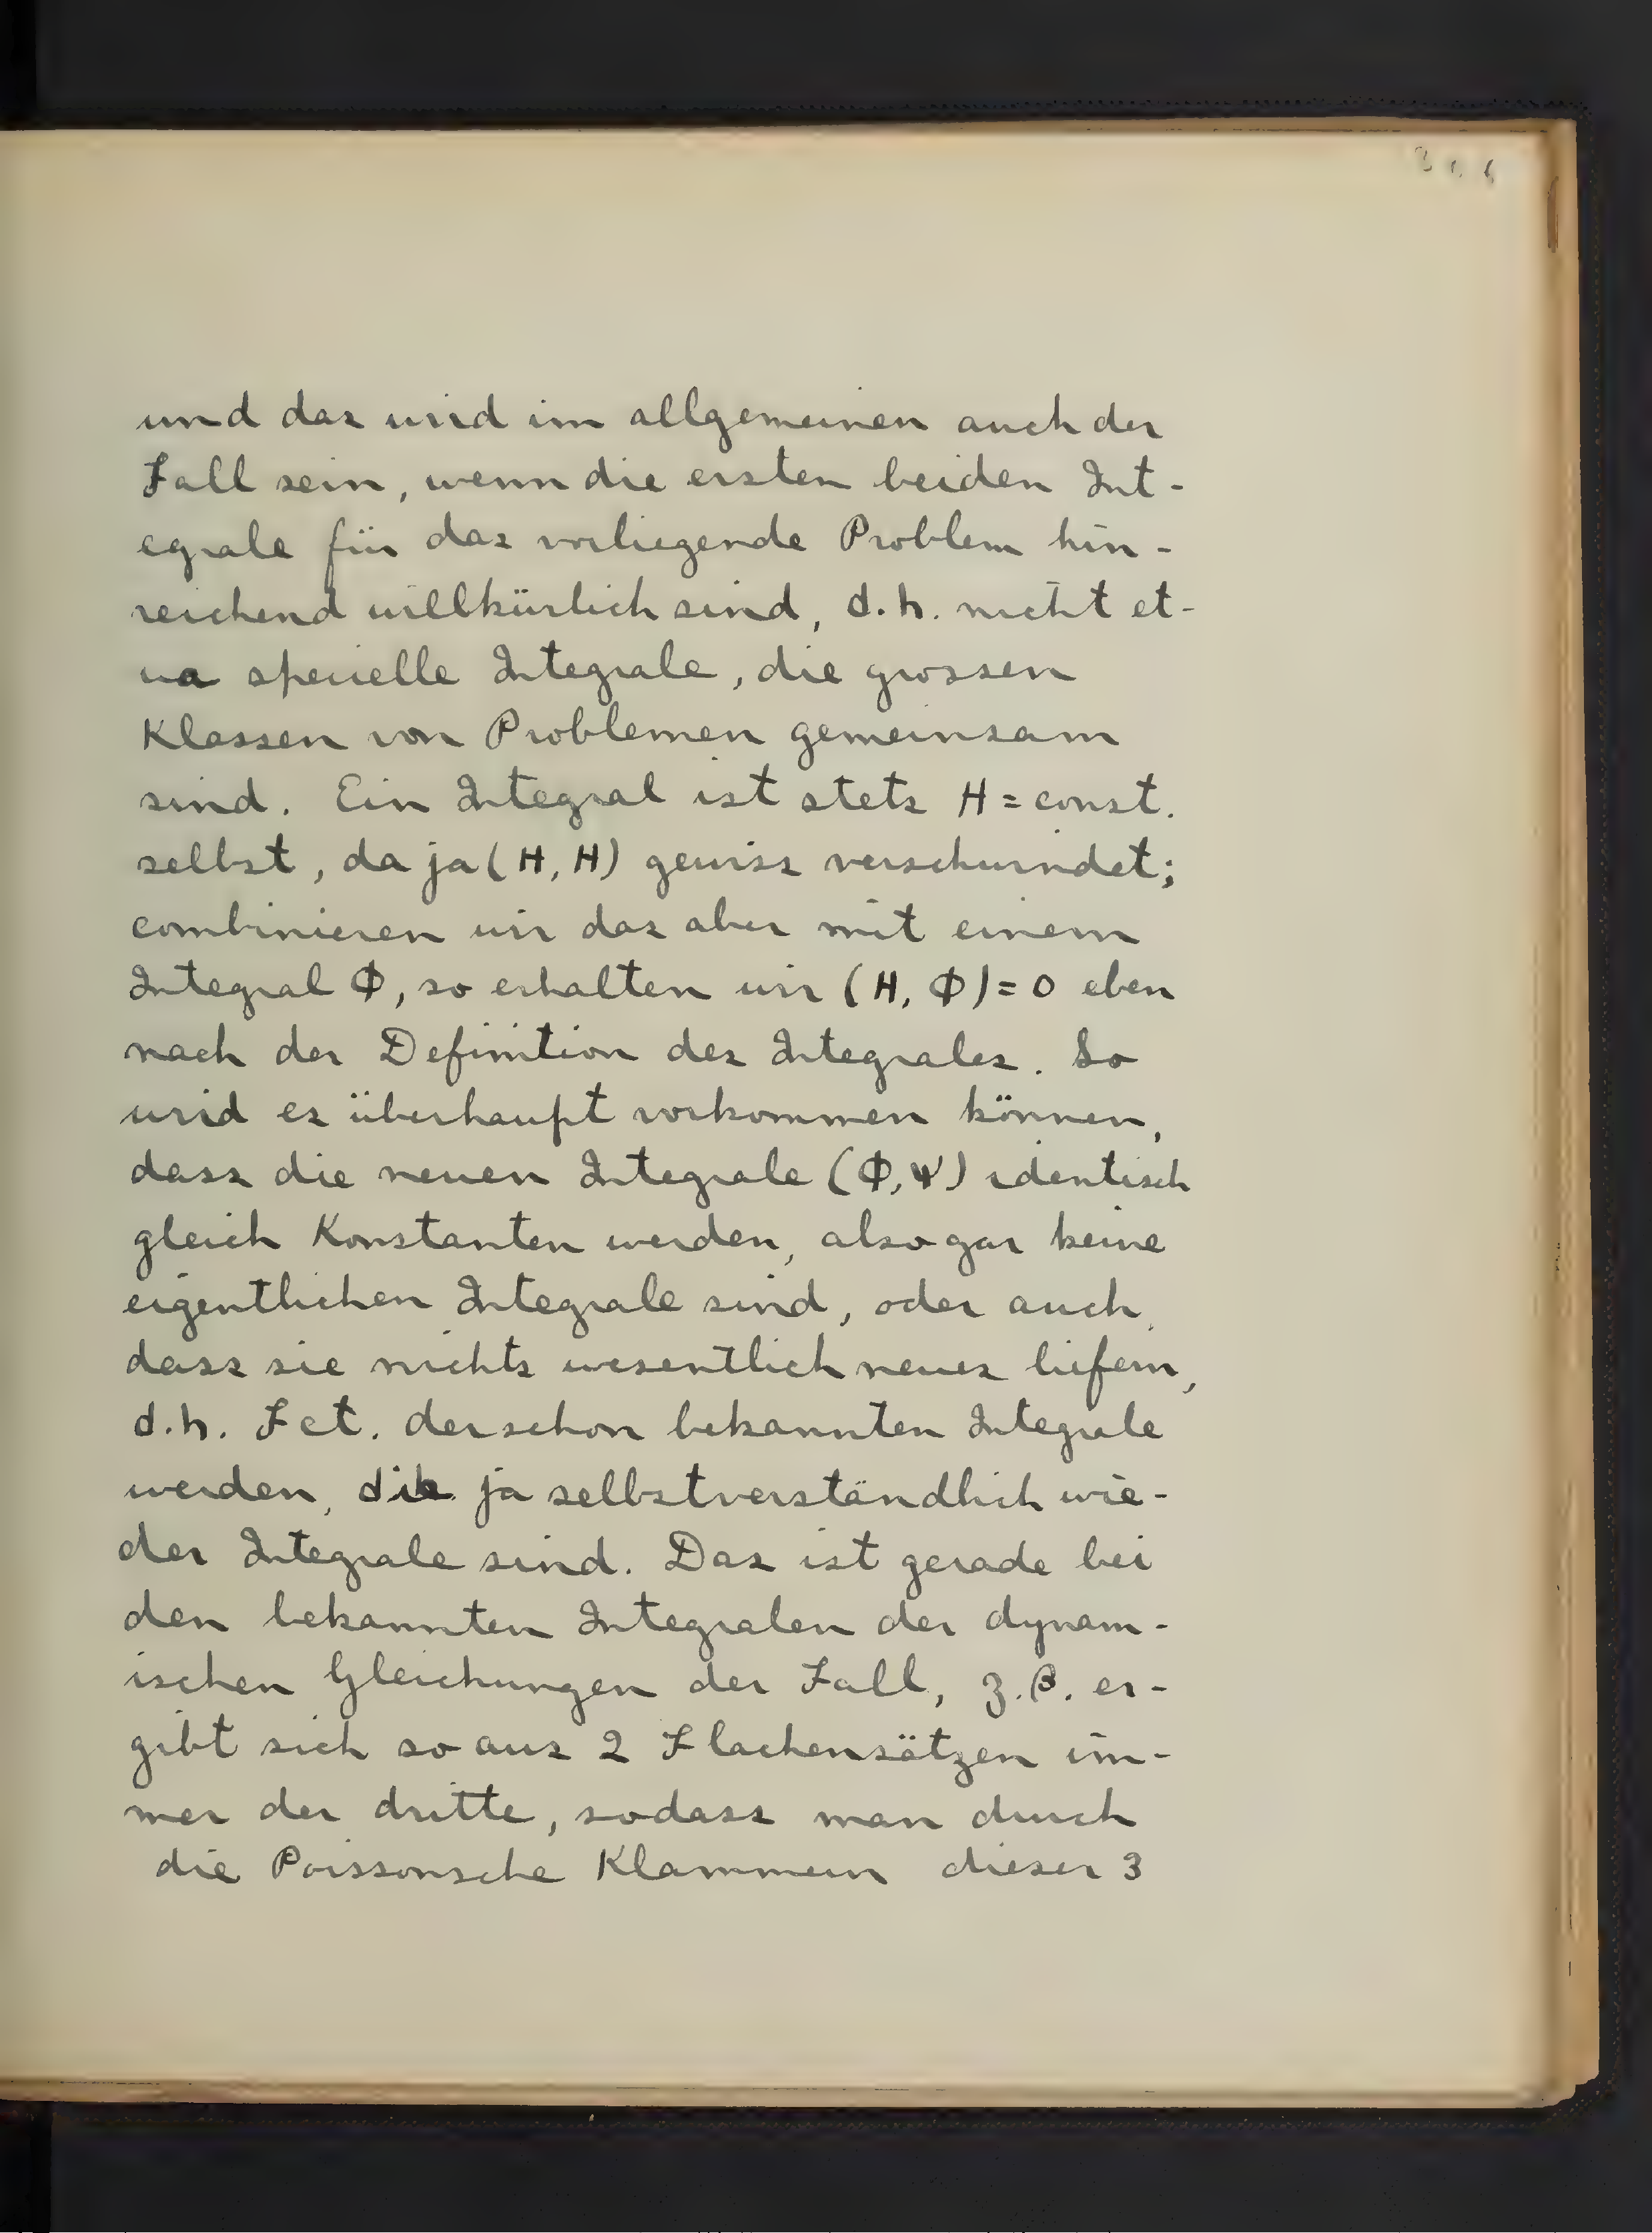 und das wird im allgemeinen auch der
Fall sein, wenn die ersten beiden Int-
egrale für das vorliegende Problem hin-
reichend willkürlich sind, d.h. nicht et-
wa spezielle Integrale, die grossen
Klassen von Problemen gemeinsam
sind. Ein Integral ist stets H = const.
selbst, da ja (H, H) gewiss verschwindet;
combinieren wir das aber mit einem
Integral Φ, so erhalten wir (H, Φ) = 0 eben
nach der Definition des Integrales. So
wird es überhaupt vorkommen können,
dass die neuen Integrale (Φ, Ψ) identisch
gleich Konstanten werden, also gar keine
eigentlichen Integrale sind, oder auch,
dass sie nichts wesentlich neues liefern,
d.h. Fct. der schon bekannten Integrale
werden, die ja selbstverständlich wie-
der Integrale sind. Das ist gerade bei
den bekannten Integralen der dynam-
ischen Gleichungen der Fall, z.B. er-
gibt sich so aus 2 Flachensätzen im-
mer der dritte, sodass man durch
die Poissonsche Klammern dieser 3